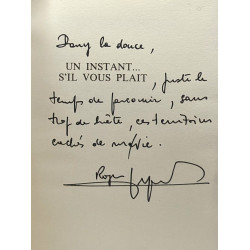 Dany la douce,
UN INSTANT...
S'IL VOUS PLAIT , juste le
temps de parcourir, sans
trop de hâte, ces territoires
cachés de ma vie.
Roger